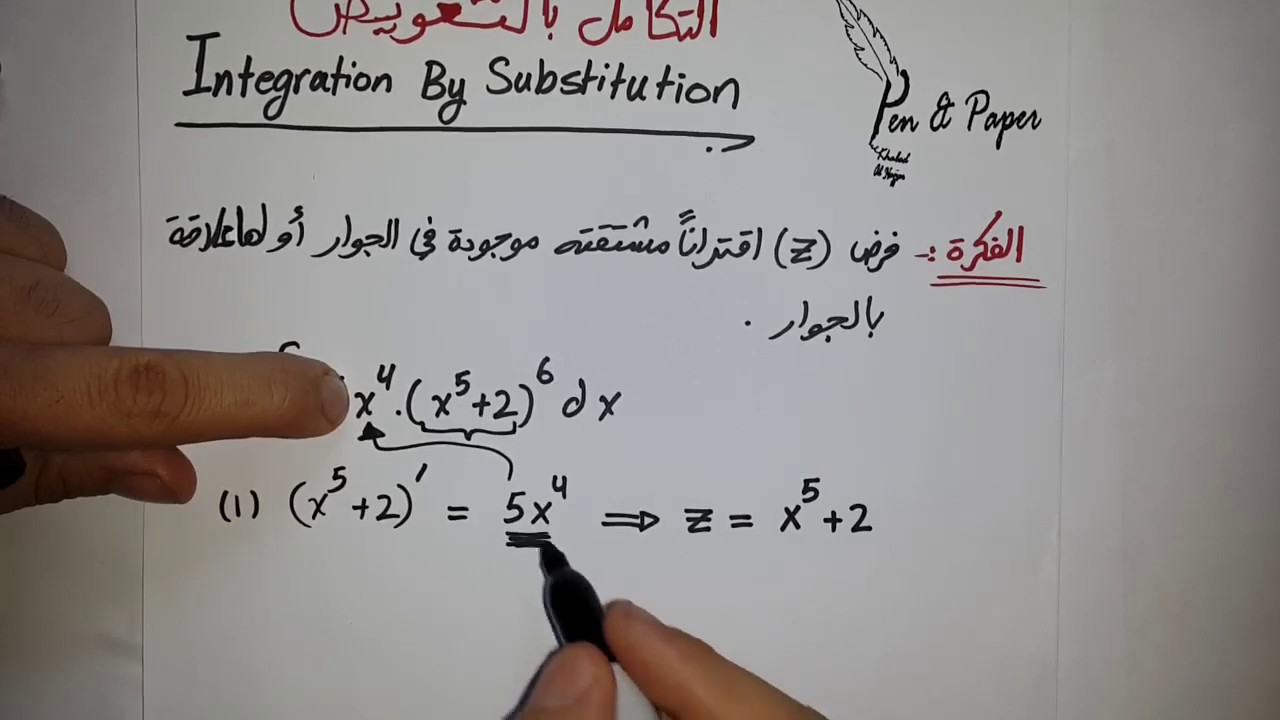 التكامل بالتعويض
Integration By Substitution
Pen & Paper
Khaled
Al Najjar
الفكرة :- فرض (z) اقتراناً مشتقته موجودة في الجوار أو لها علاقة
بالجوار .
x⁴.(x⁵+2)⁶ dx
(1) (x⁵+2)′ = 5x⁴ ⟹ z = x⁵+2